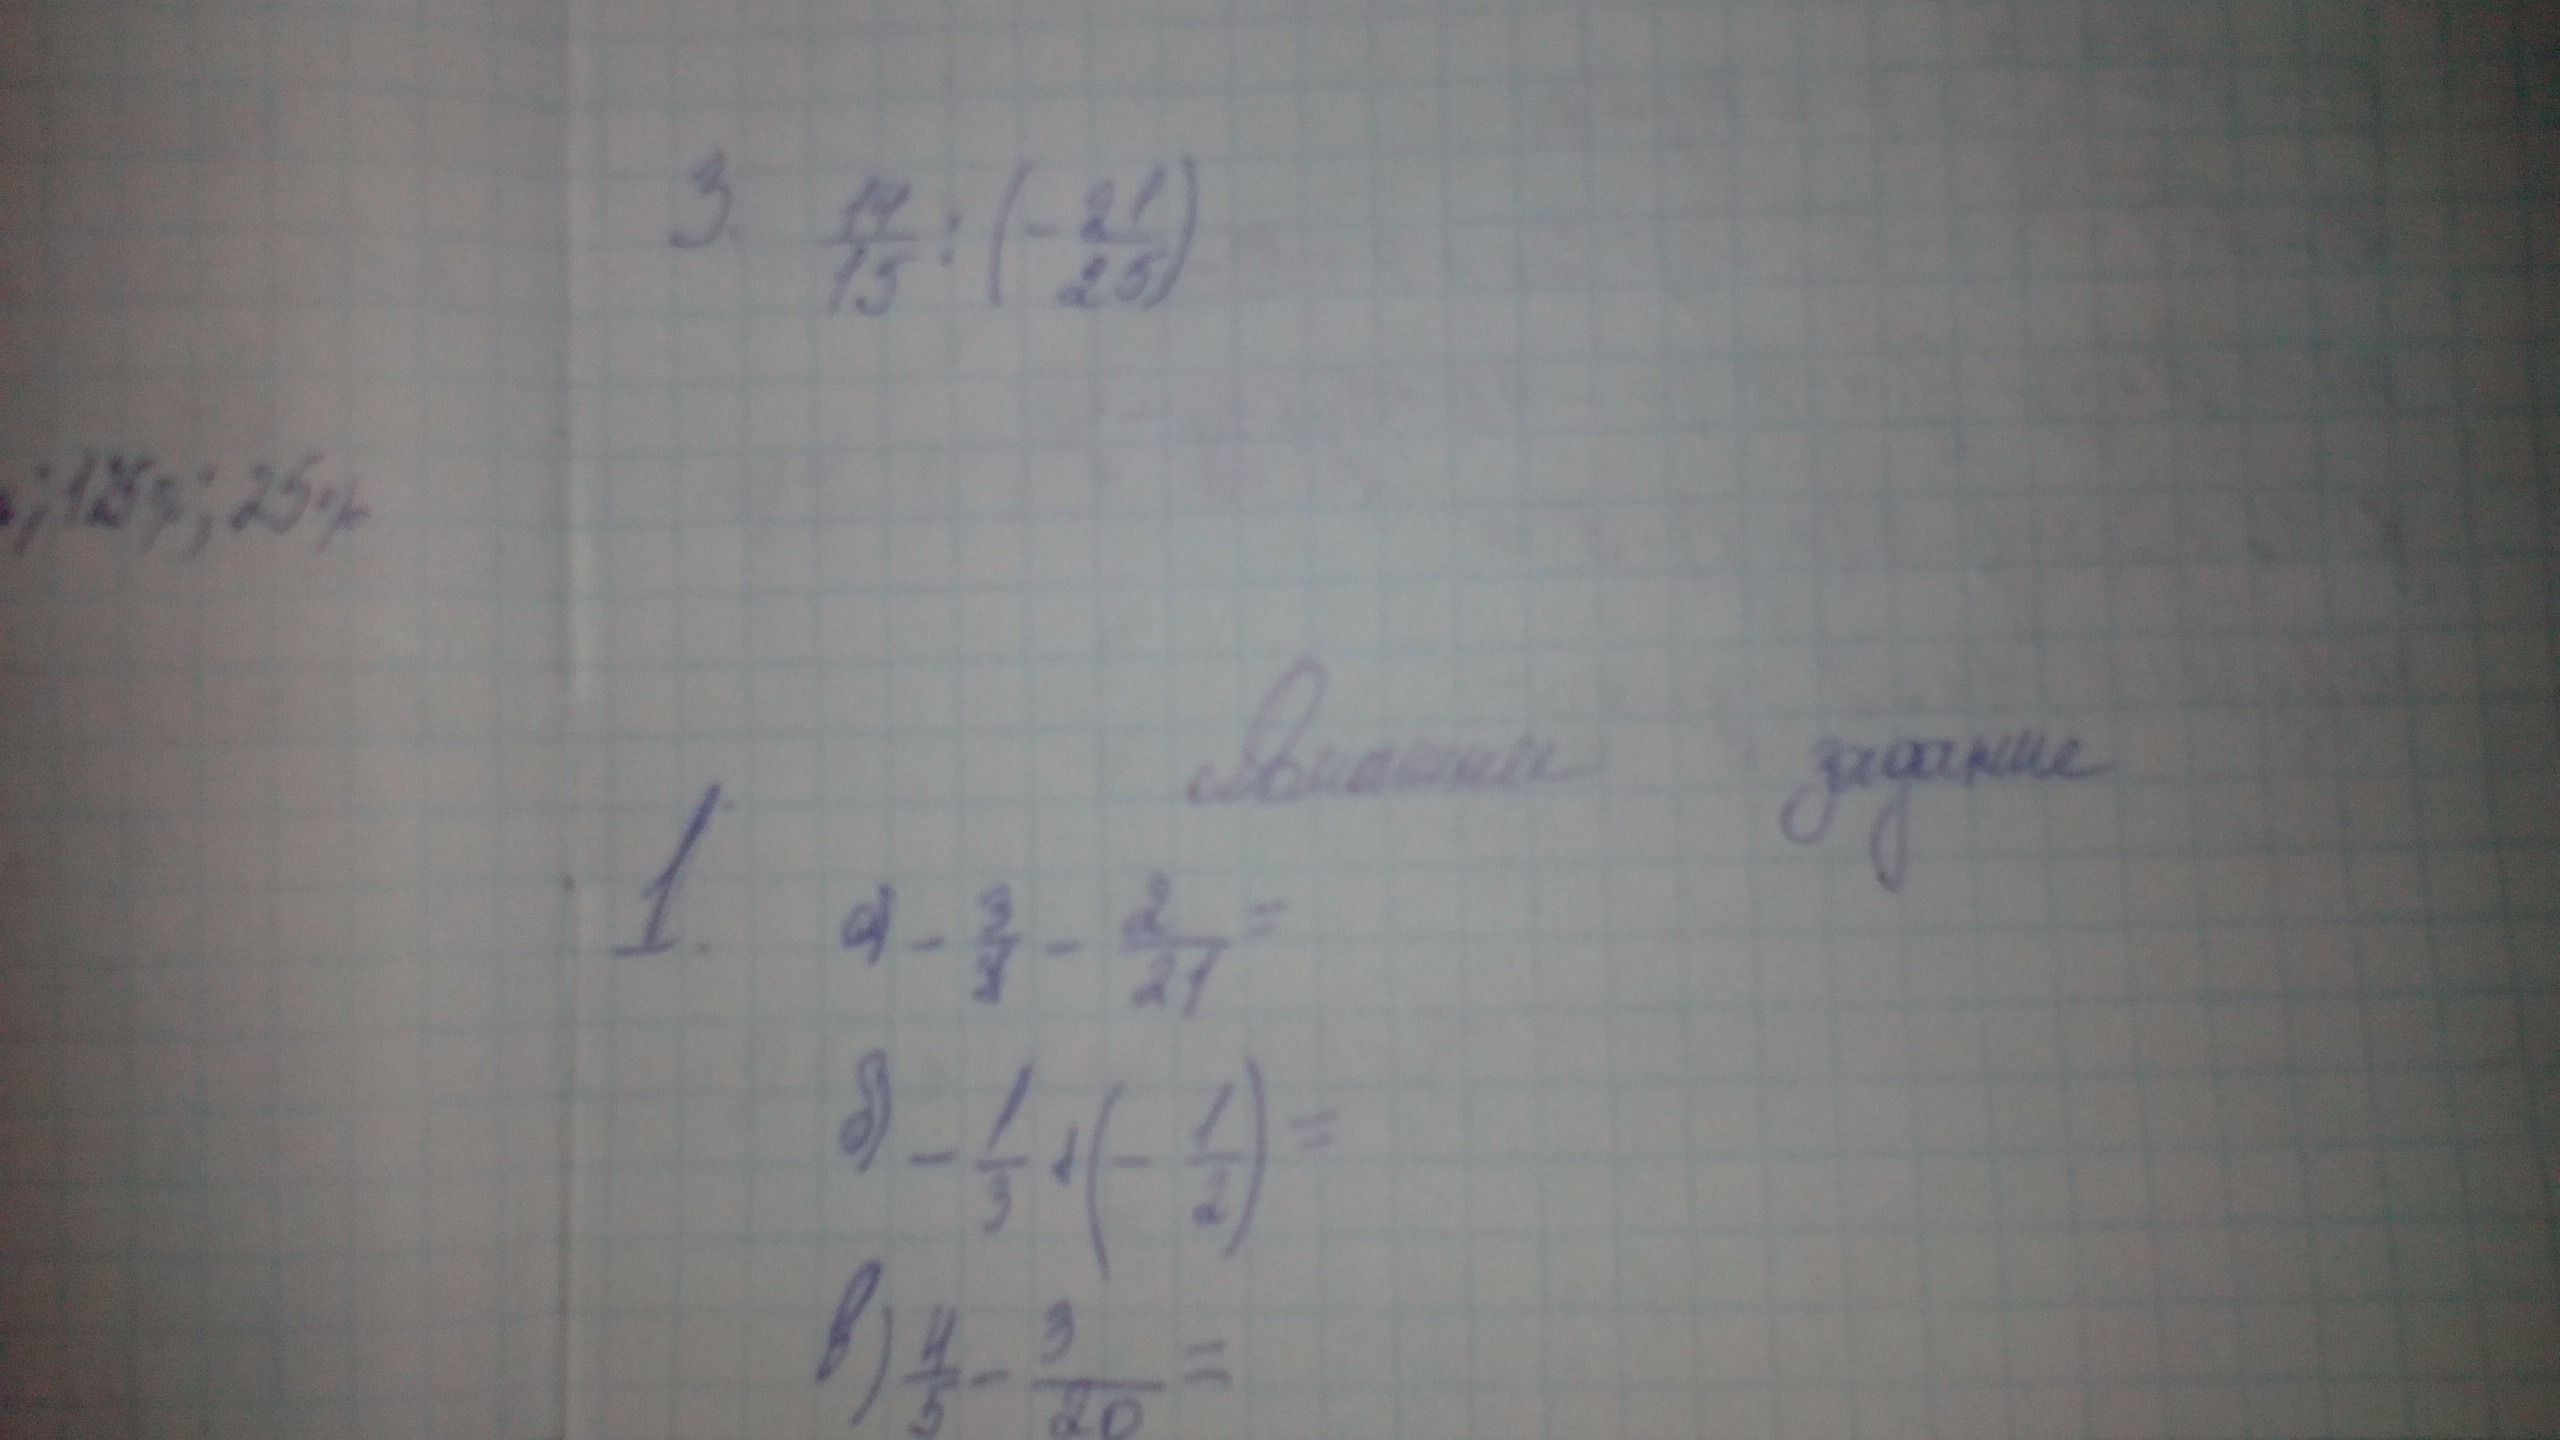 3. 14/15 : (- 21/25)
; 125 ; 25
Домашнее задание
1. а) - - 2/21 =
б) - 1/3 + (- 1/2) =
в) 4/5 - 3/20 =